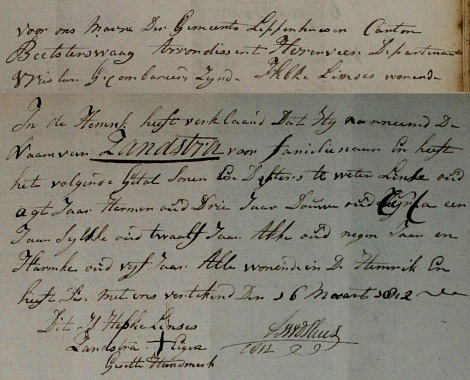 voor ons Maire Der Gemeente Lippenhuisen Canton
Beetsterswaag Arrondissent Herenveen Departement
Vrieslan Gecompareert Zynde Hepke Linses wonende
In de Hemrik heeft verklaard Dat Hy aanneemd De
Naam van Landstra voor familienaam En heeft
het volgende Getal Sonen En Dogters te weten Linse oud
agt Jaar Harmen oud Drie Jaar Douwe oud een
Jaar Sytske oud twaalf Jaar Akke oud negen Jaar en
Harmke oud vyf Jaar Alle wonende in De Hemrik En
heeft Dit met ons vertekend Den 16 Maart 1812
Dit Is Hepke Linses
Landstra + Eigen
Gestelde Handmerk